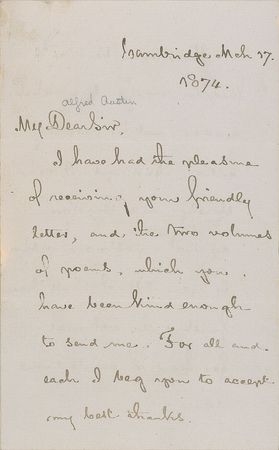 Cambridge Mch 17.
1874.
Alfred Austin
My Dear Sir,
I have had the pleasure
of receiving your friendly
letter, and the two volumes
of poems, which you
have been kind enough
to send me. For all and
each I beg you to accept
my best thanks.